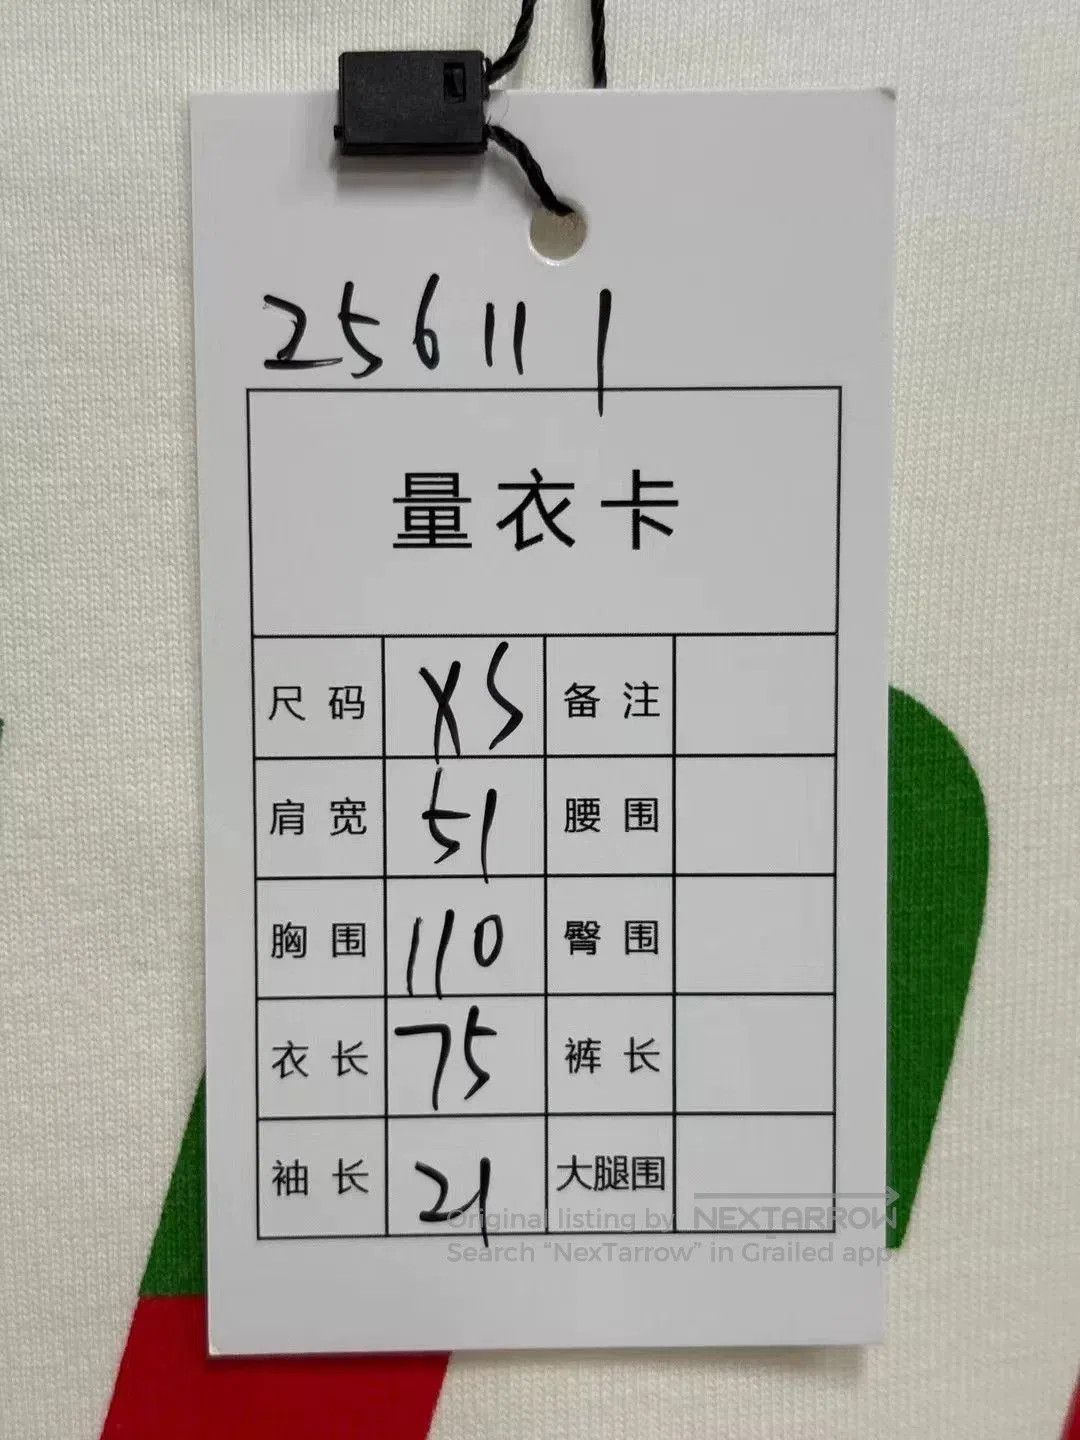 256111
量衣卡
尺码 XS 备注
肩宽 51 腰围
胸围 110 臀围
衣长 75 裤长
袖长 21 大腿围
Original listing by NEXTARROW
Search “NexTarrow” in Grailed app